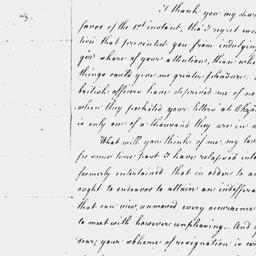 I thank you my dear
favor of the 1st instant, tho' I regret
tion that prevented you from indulging
your share of your attention, than which
things could give me greater pleasure.
british officers have deprived me of
when they pocketed your letters at Eliza
is only one of a thousand they are in
What will you think of me, my
for some time past I have relapsed into
formerly entertained that in order to
ought to endeavor to attain an indiffer
that can view unmoved every occurrence
to meet with however unpleasing. And
your scheme of resignation is